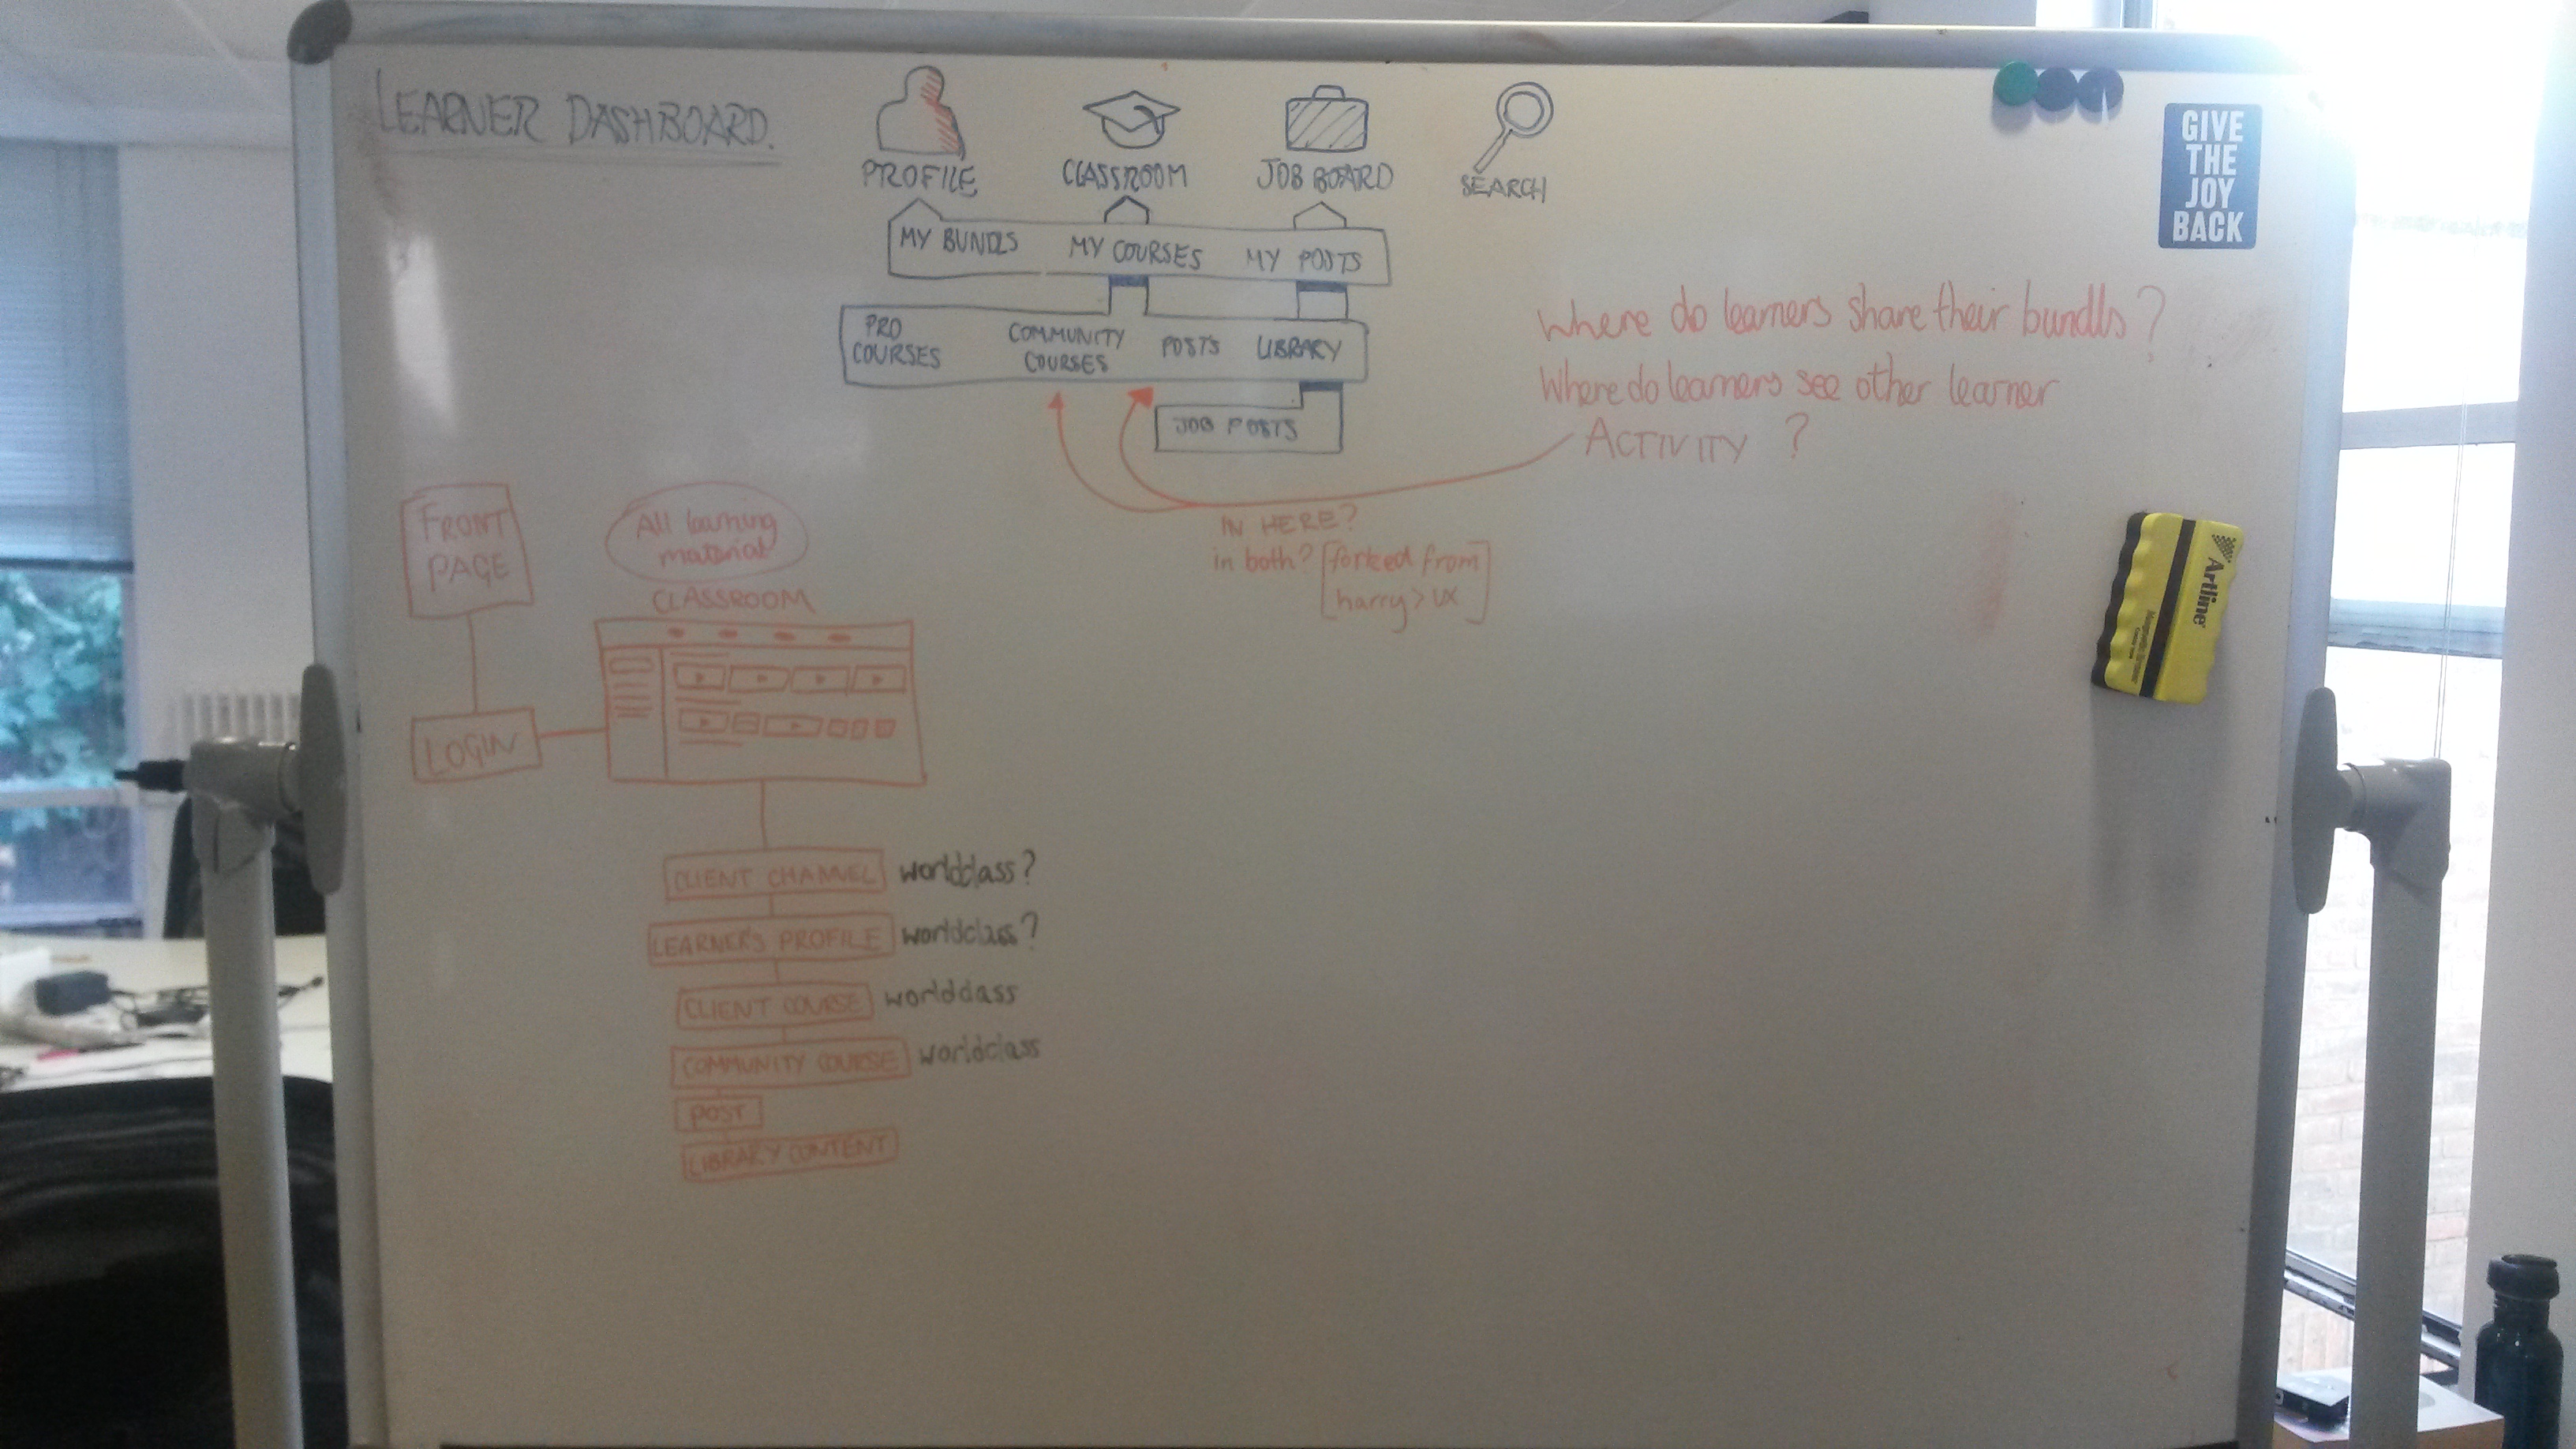 LEARNER DASHBOARD.
PROFILE
CLASSROOM
JOB BOARD
SEARCH
MY BUNDLS
MY COURSES
MY POSTS
PRO
COURSES
COMMUNITY
COURSES
POSTS
LIBRARY
JOB POSTS
Where do learners share their bundls?
Where do learners see other learner
ACTIVITY ?
IN HERE?
in both? [forked from
harry > UX]
FRONT
PAGE
LOGIN
All learning
material
CLASSROOM
CLIENT CHANNEL worldclass?
LEARNER'S PROFILE worldclass?
CLIENT COURSE worldclass
COMMUNITY COURSE worldclass
POST
LIBRARY CONTENT
GIVE
THE
JOY
BACK
Artline